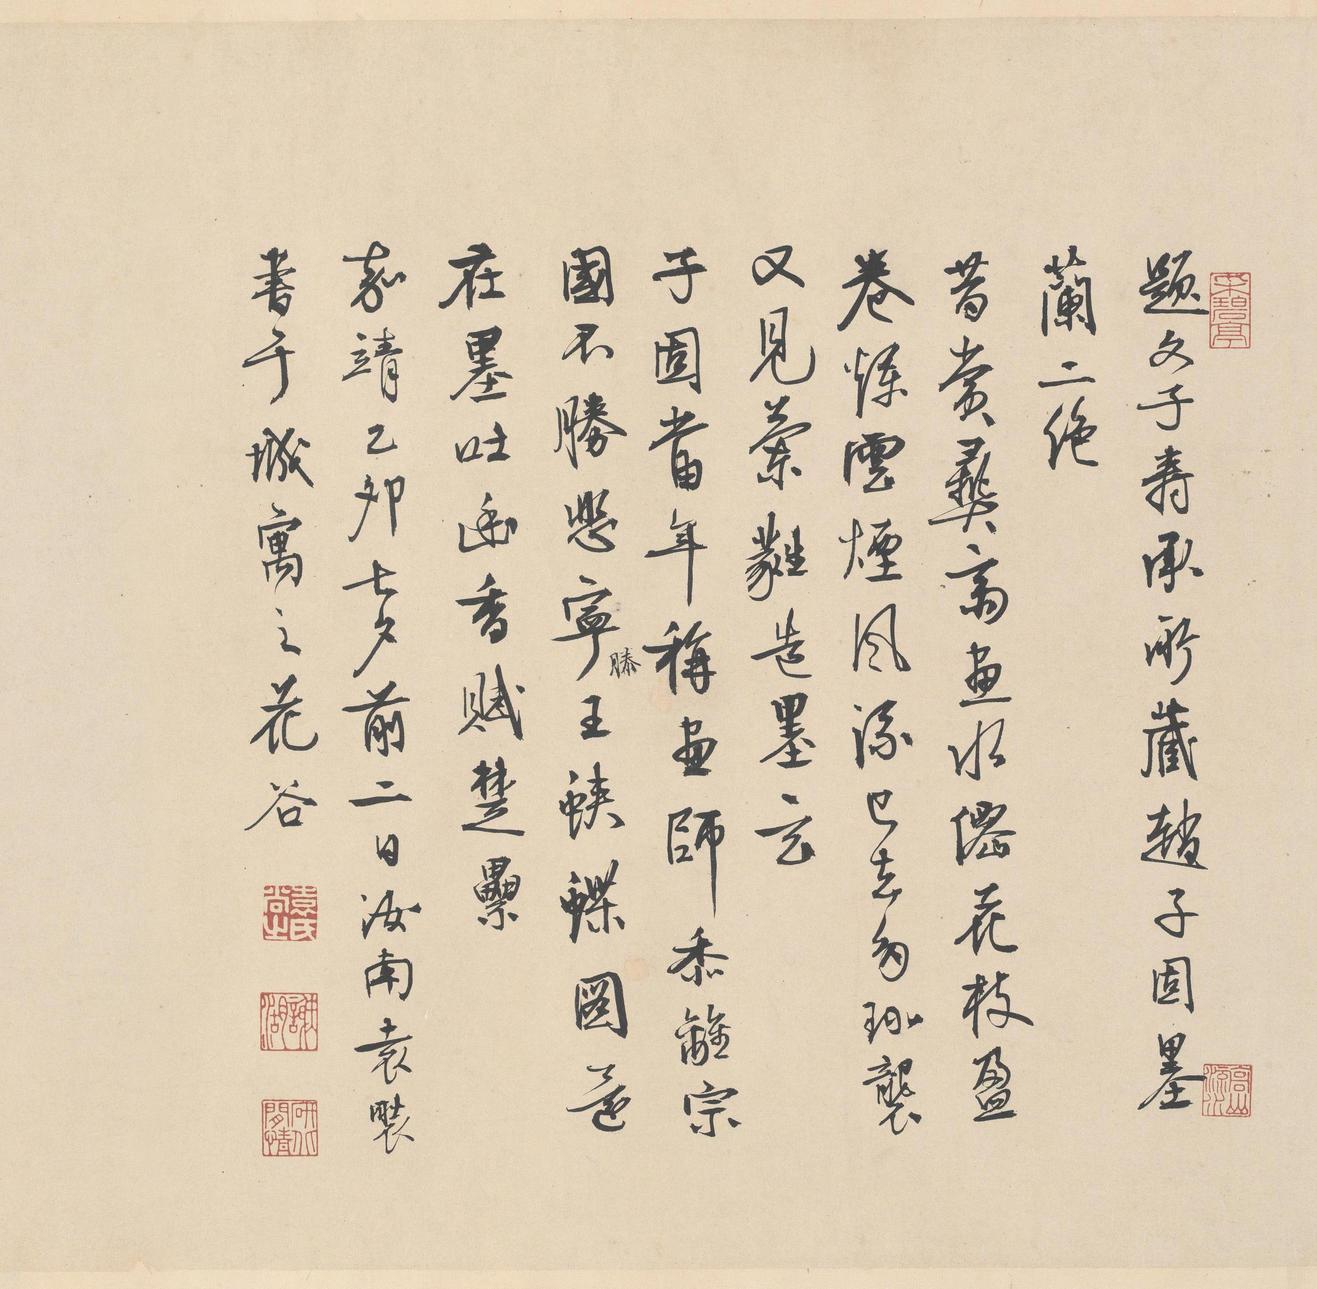 題文子壽承所藏趙子固墨
蘭二絶
昔賞彝齋畫水僊花枝盈
卷爍雲煙風流已去多珎襲
又見蘂蕤造墨玄
子固當年稱畫師黍離宗
國不勝悲寧王蛺蝶圖並
滕
在墨吐幽香賦楚纍
嘉靖乙卯七夕前二日汝南袁褧
書于城寓之花谷
袁氏尚之
謝湖